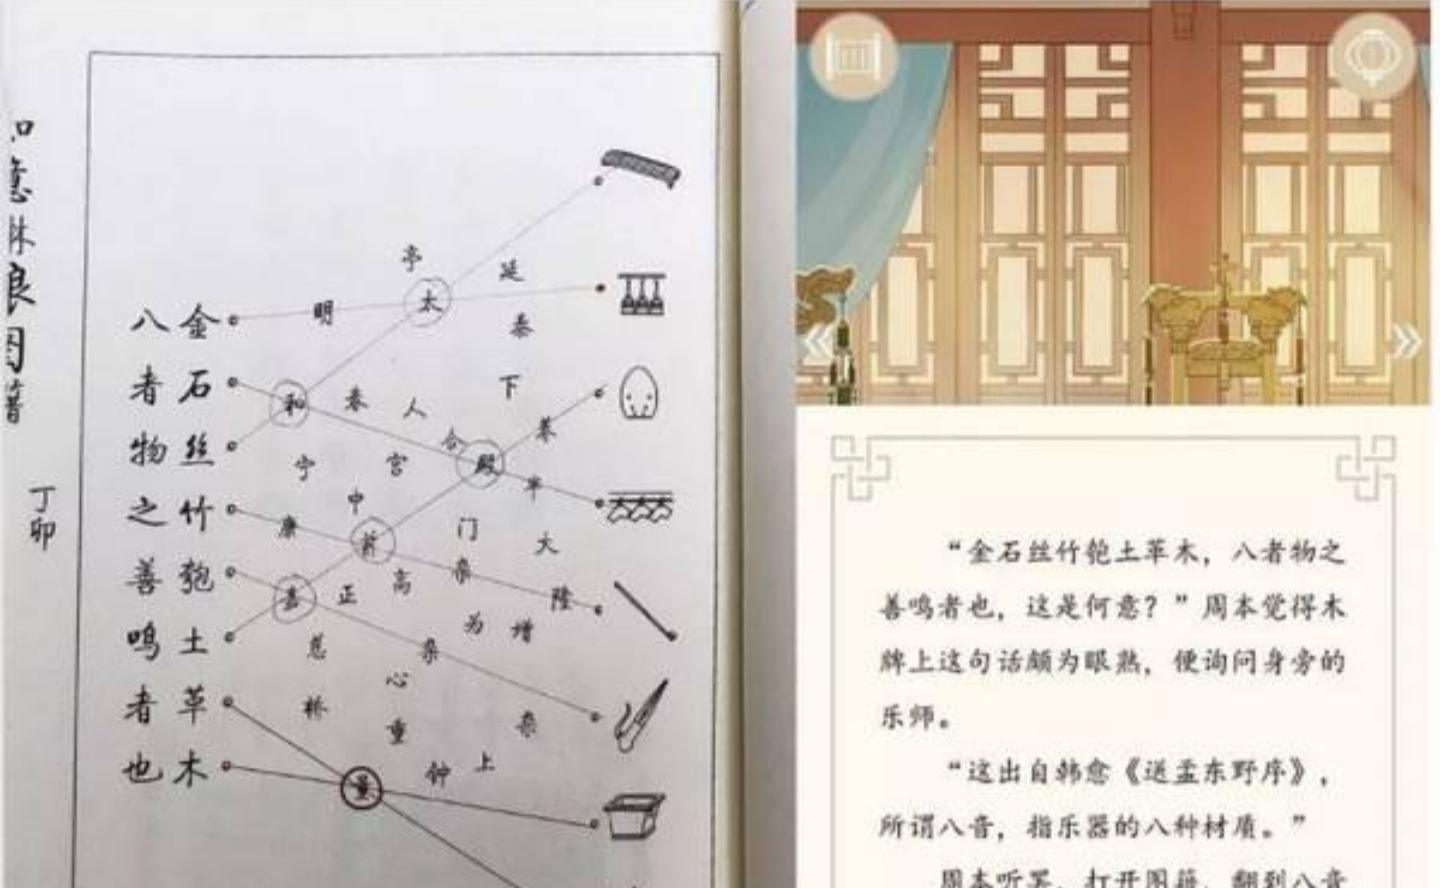 如意琳琅图籍
丁卯
金石丝竹匏土革木
八者物之善鸣者也
亭
延
明
太
泰
下
和
春
人
合
慕
殿
宁
宫
中
康
门
前
大
嘉
正
高
隆
为
增
慈
心
桥
重
量
钟
上
“金石丝竹匏土革木，八者物之
善鸣者也，这是何意？”周本觉得木
牌上这句话颇为眼熟，便询问身旁的
乐师。
“这出自韩愈《送孟东野序》，
所谓八音，指乐器的八种材质。”
周本听罢，打开图籍，翻到八音